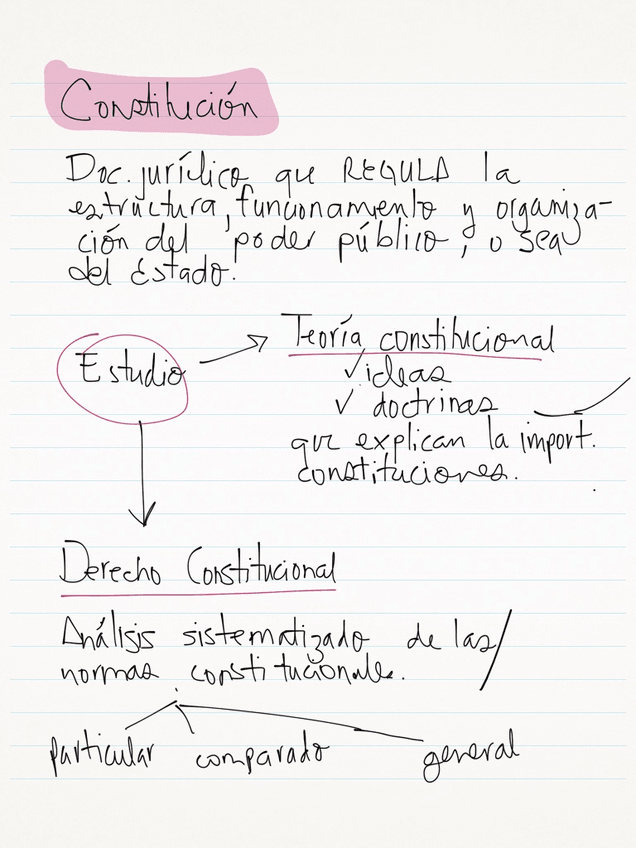 Constitución
Doc. jurídico que REGULA la
estructura, funcionamiento y organiza-
ción del poder público, o sea
del Estado.
Estudio
Teoría constitucional
✓ ideas
✓ doctrinas
que explican la import.
constituciones.
Derecho Constitucional
Análisis sistematizado de las
normas constitucionale.
particular comparado general